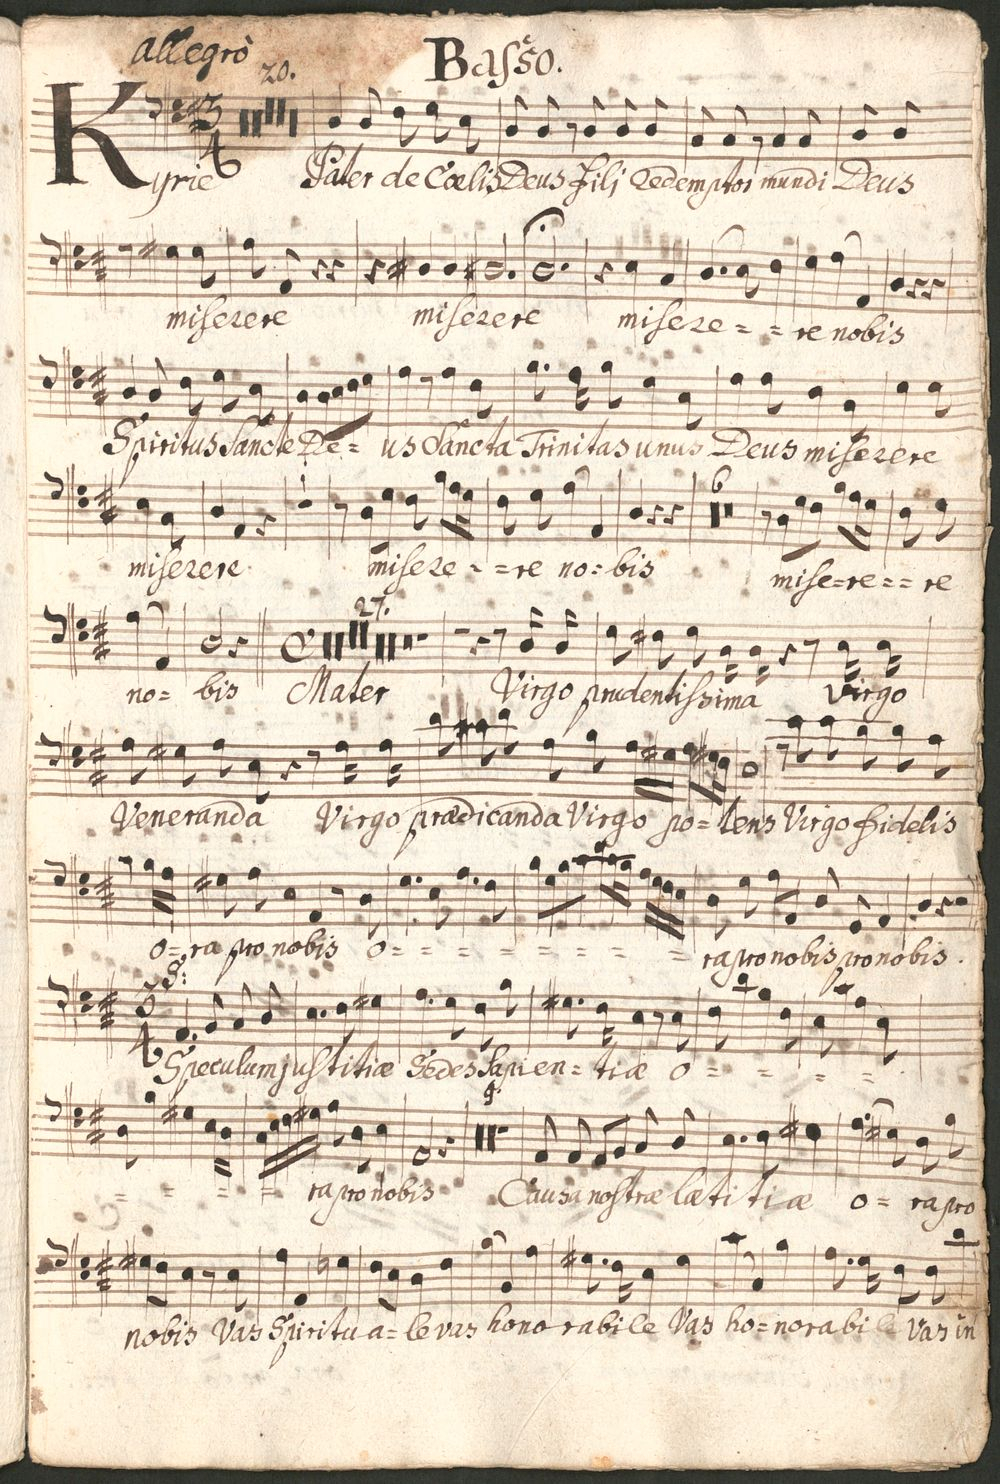 allegro Basso.
20.
3 4
Kyrie Pater de Cœlis Deus Filj Redemptor mundi Deus
miserere miserere misere = = re nobis
Spiritus Sancte De = us Sancta Trinitas unus Deus miserere
6
miserere misere = = re no = bis mise = re = = re
27.
no = bis Mater Virgo prudentissima Virgo
Veneranda Virgo prædicanda Virgo po = tens Virgo fidelis
o = ra pro nobis o = = = = = = = = ra pro nobis pro nobis.
3 4 S:
Speculum justitiæ Sedes Sapien = tiæ o = = = =
9.
= = = = ra pro nobis Causa nostræ lætitiæ o = ra pro
nobis Vas Spiritua = le vas honorabile Vas ho = norabile Vas in